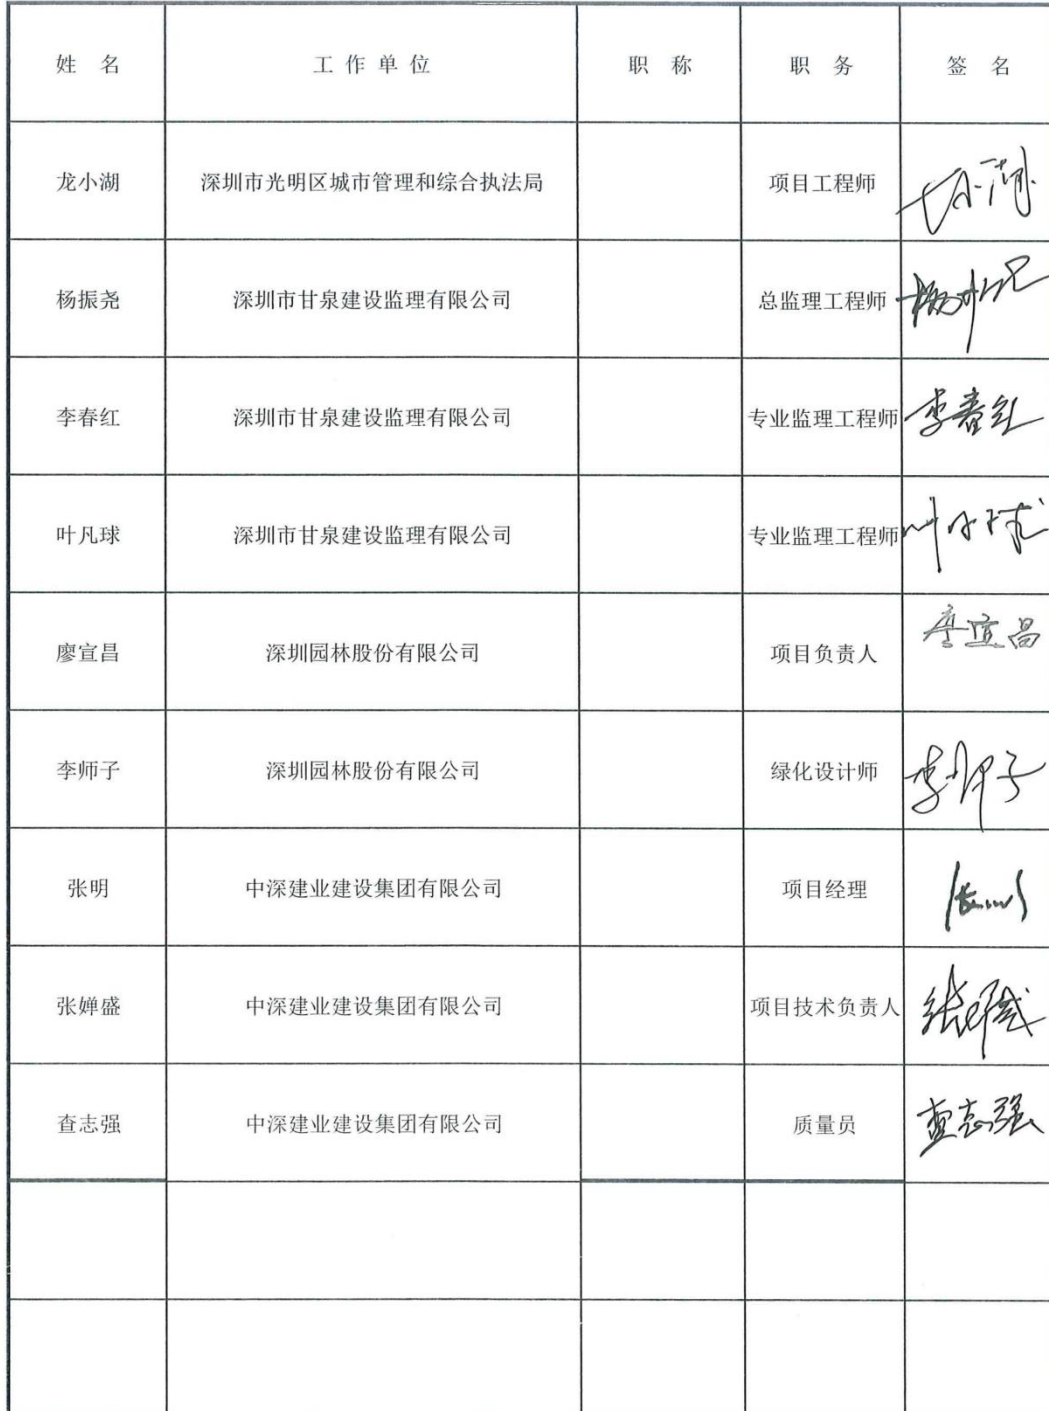 姓 名 工 作 单 位 职 称 职 务 签 名
龙小湖 深圳市光明区城市管理和综合执法局 项目工程师
杨振尧 深圳市甘泉建设监理有限公司 总监理工程师
李春红 深圳市甘泉建设监理有限公司 专业监理工程师 李春红
叶凡球 深圳市甘泉建设监理有限公司 专业监理工程师 叶凡球
廖宣昌 深圳园林股份有限公司 项目负责人 廖宣昌
李师子 深圳园林股份有限公司 绿化设计师 李师子
张明 中深建业建设集团有限公司 项目经理 张明
张婵盛 中深建业建设集团有限公司 项目技术负责人
查志强 中深建业建设集团有限公司 质量员 查志强